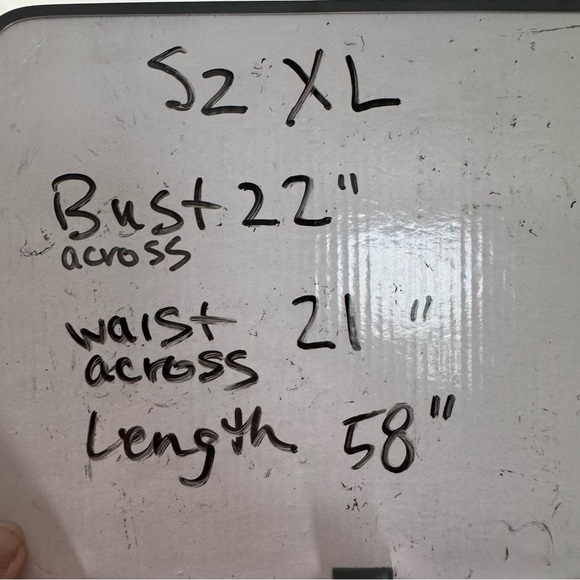 Sz XL
Bust 22"
across
waist 21"
across
Length 58"